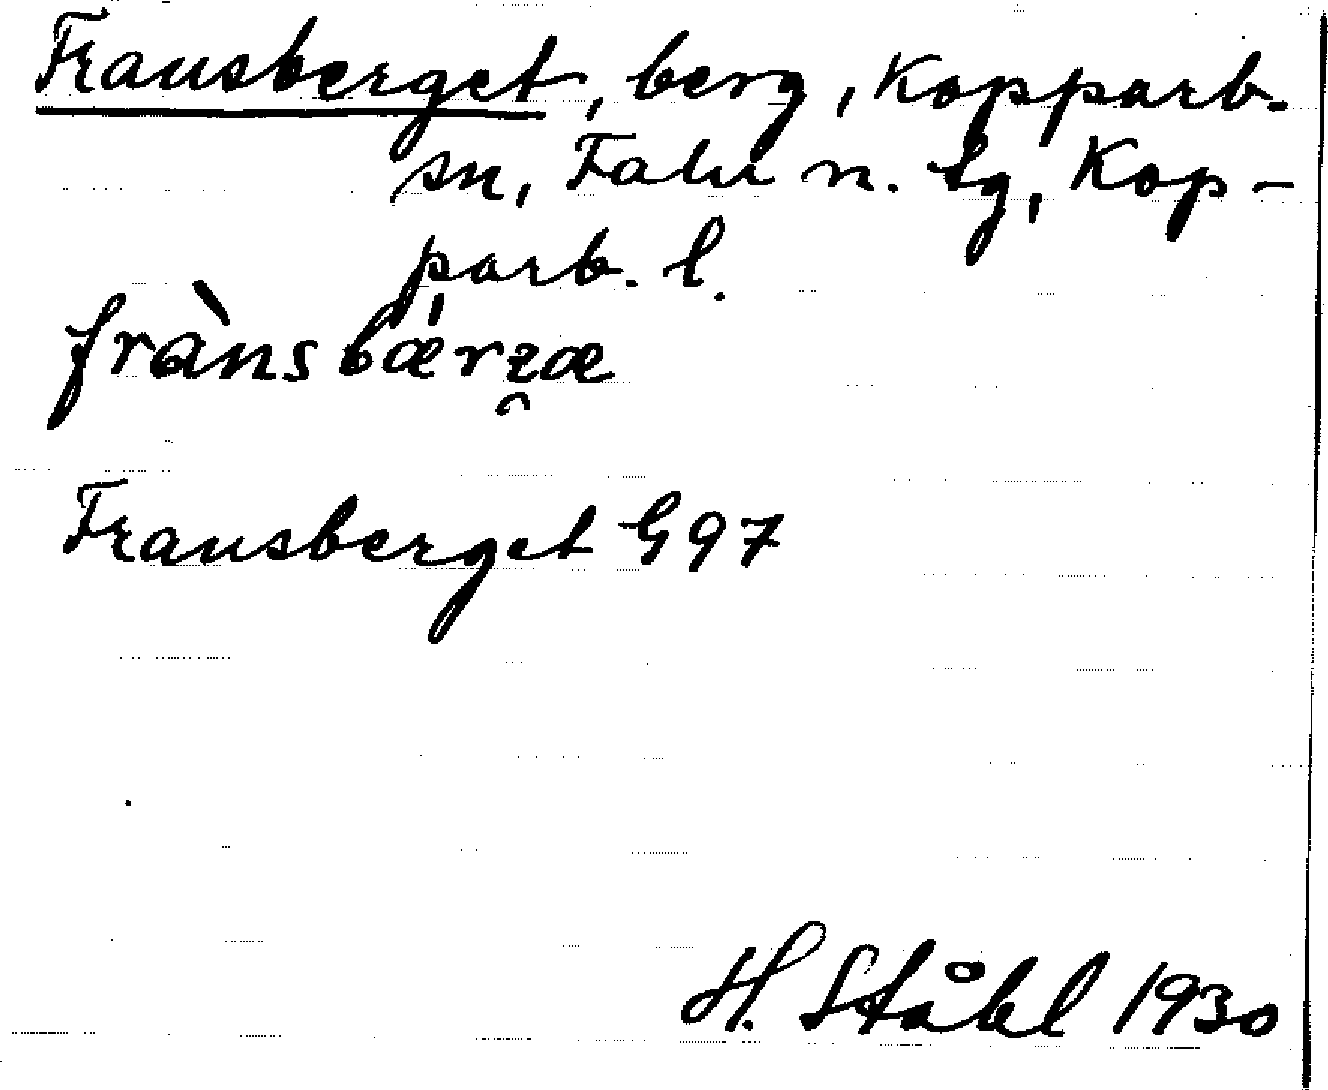 Fransberget, berg, Kopparb.
sn, Falu n. tg, Kop-
parb. l.
frànsbæ̍rʐæ
Fransberget G97
H. Ståhl 1930